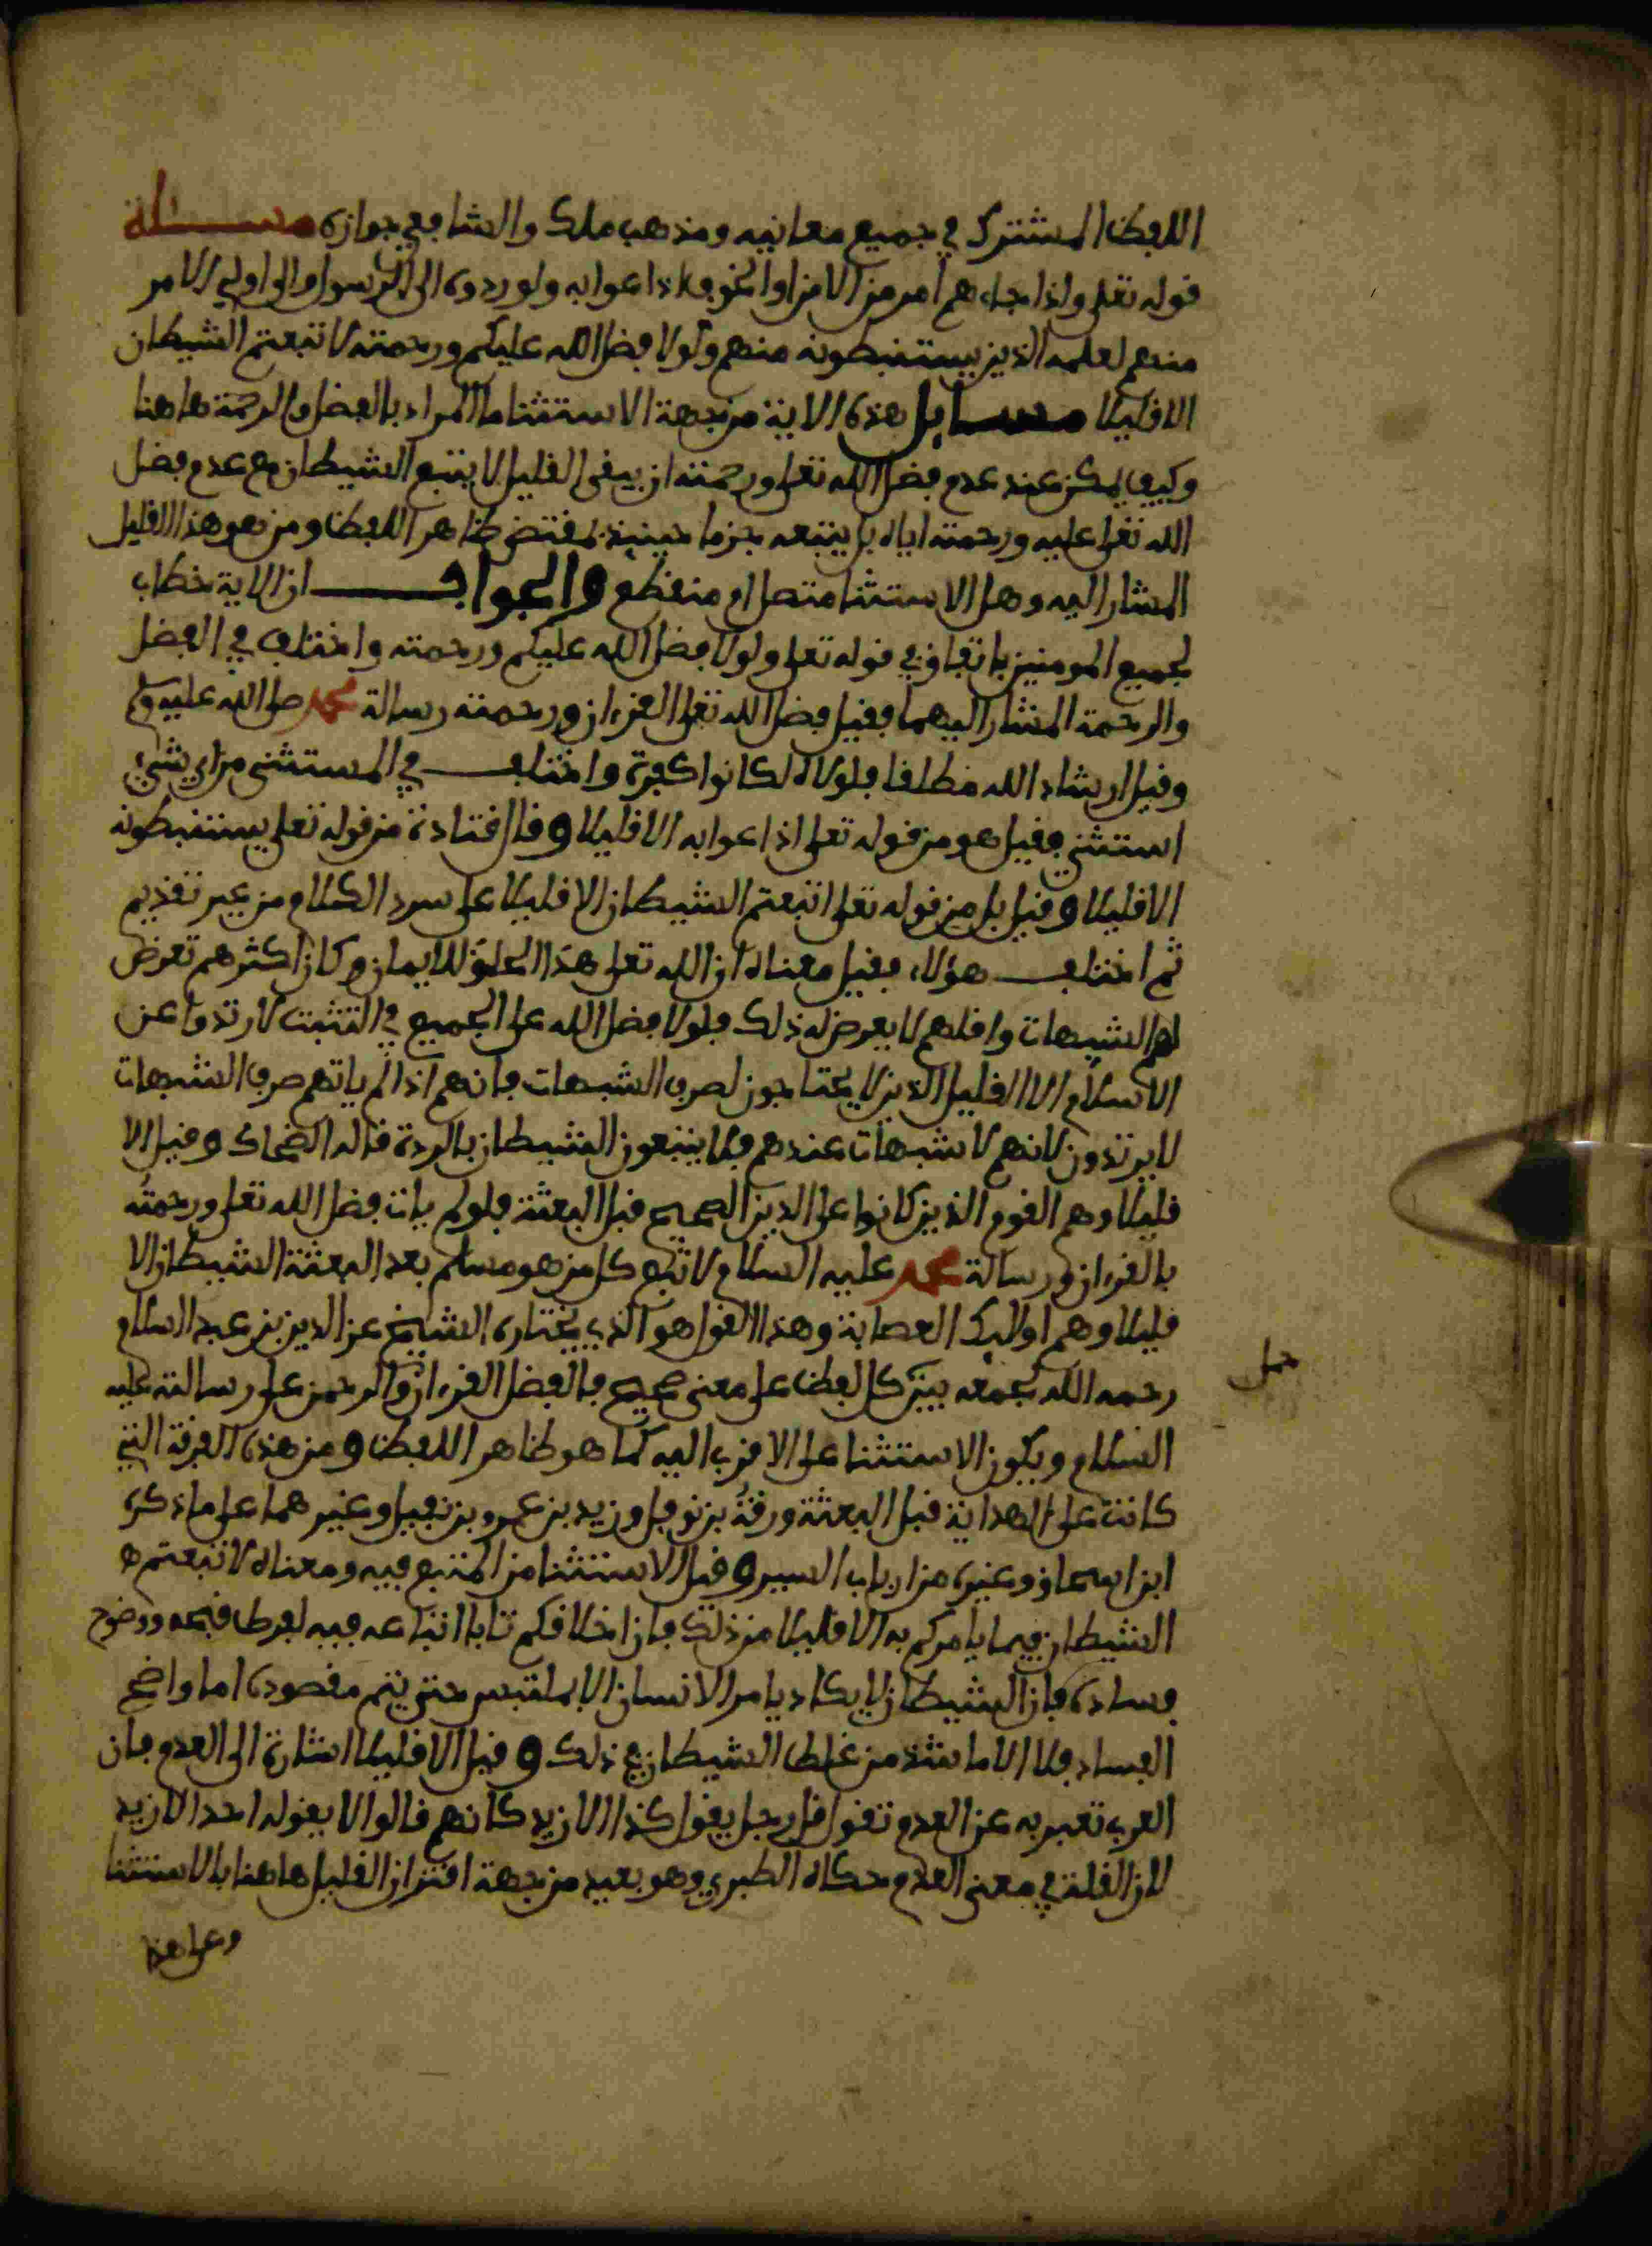 اللفظ المشترك في جميع معانيه ومذهب ملك والشافعي جوازه مسئلة
قوله تعلى واذا جاءهم امر من الامن او الخوف اذاعوا به ولو ردوه الى الرسول والى اولي الامر
منهم لعلمه الذين يستنبطونه منهم ولولا فضل الله عليكم ورحمته لاتبعتم الشيطان
الا قليلا مسايل هذه الاية من جهة الاستثنا ما المراد بالفضل والرحمة هاهنا
وكيف يمكن عند عدم فضل الله تعلى ورحمته ان يبقى القليل لا يتبع الشيطان مع عدم فضل
الله تعلى عليه ورحمته اياه بل يتبعه جزما حينئذ بمقتضى ظاهر اللفظ ومن هو هذا القليل
المشار اليه وهل الاستثنا متصل او منقطع والجواب ان الاية خطاب
لجميع المومنين باتفاق في قوله تعلى ولولا فضل الله عليكم ورحمته واختلف في الفضل
والرحمة المشار اليهما فقيل فضل الله تعلى القرءان ورحمته رسالة محمد صلى الله عليه وسلم
وقيل ارشاد الله مطلقا فلولاه لكانوا كفرة واختلف في المستثنى من اي شيء
استثني فقيل هو من قوله تعلى اذاعوا به الا قليلا وقال قتادة من قوله تعلى يستنبطونه
الا قليلا وقيل بل من قوله تعلى اتبعتم الشيطان الا قليلا على سرد الكلام من غير تقديم
ثم اختلف هؤلاء فقيل معناه ان الله تعلى هدا الخلق للايمان وكان اكثرهم تعرض
لهم الشبهات واقلهم لا يعرض له ذلك فلولا فضل الله على الجميع في التثبت لارتدوا عن
الاسلام الا القليل الذين لا يحتاجون لصرف الشبهات فانهم اذا لم ياتهم صرف الشبهات
لا يرتدون لانهم لا شبهات عندهم فلا يتبعون الشيطان بالردة قاله الضحاك وقيل الا
قليلا وهم القوم الذين كانوا على الدين الصحيح قبل البعثة فلو لم يات فضل الله تعلى ورحمته
بالقرءان ورسالة محمد عليه السلام لاتبع كل من هو مسلم بعد البعثة الشيطان الا
قليلا وهم اولائك العصابة وهذا القول هو الذي يختاره الشيخ عز الدين بن عبد السلام
حمل
رحمه الله لجمعه بين كل لفظ على معنى صحيح فالفضل القرءان والرحمن على رسالته عليه
السلام ويكون الاستثنا على الاقرب اليه كما هو ظاهر اللفظ ومن هذه الفرقة التي
كانت على الهداية قبل البعثة ورقة بن نوفل وزيد بن عمرو بن نفيل وغيرهما على ما ذكره
ابن اسحاق وغيره من ارباب السير وقيل الاستثنا من المتبع فيه ومعناه لاتبعتم
الشيطان فيما يامركم به الا قليلا من ذلك فان اخلاقكم تابا اتباعه فيه لفرط قبحه ووضوح
فساده فان الشيطان لا يكاد يامر الانسان الا بملتبس حتى يتم مقصوده اما واضح
الفساد فلا الا ما شذ من غلط الشيطان في ذلك وقيل الا قليلا اشارة الى العدم فان
العرب تعبر به عن العدم تقول قل رجل يقول كذا الا زيد كانهم قالوا لا يقوله احد الا زيد
لان القلة في معنى العدم حكاه الطبري وهو بعيد من جهة اقتران القليل هاهنا بالاستثنا
وعلى هذا